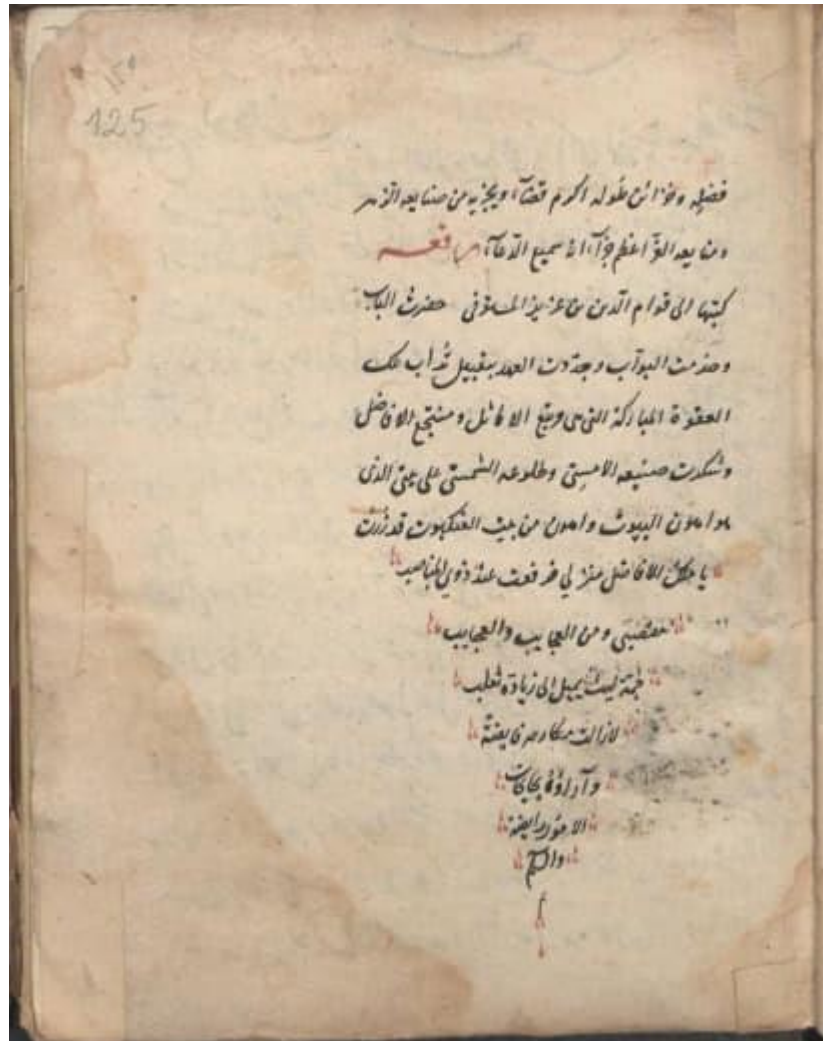 ١٢٥
125
فضله وخزائن طوله اكرم قضآء ويجزيه من صنايعه الزهر
اعظم جزآء انه سميع الدعآء رقعه
كتبها الى قوام الدين بن عزيز المستوفى حضرت الباب
وخدمت البواب وجددت العهد بتقبيل تراب تلك
العقوة المباركة التى هى الاماثل ومنتجع الافاضل
وشكرت صنيعه الامسى وطلوعه الشمسى على بيتى الذى
هو اهون البيوت واوهن من بيت العنكبوت قد زرت
يا ملك الافاضل منزلى فرفعت عند ذوى المناصب
ومن العجايب والعجايب
ليث يميل الى زيارة ثعلب
لازالت مكارمه فايضة
وآراؤه بجامحات
الامور رايضة
والسلم